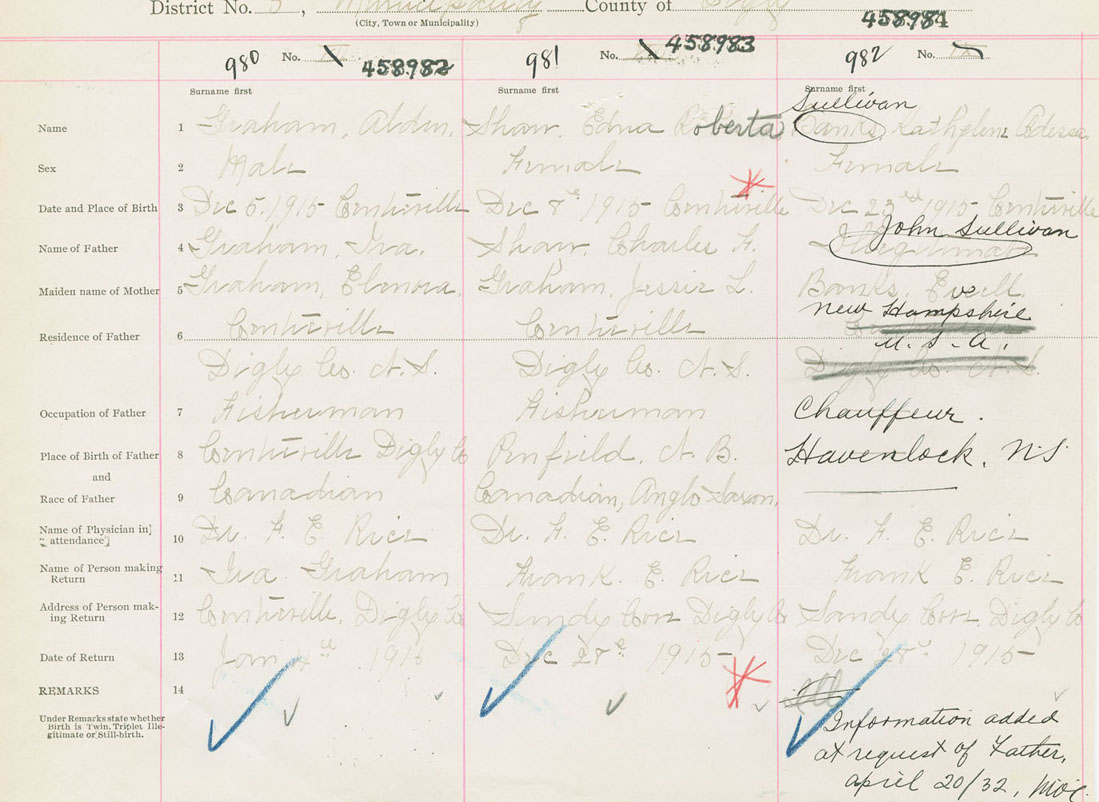 District No. 5, Municipality County of Digby
(City, Town or Municipality)
458984
980 No. 458982 981 No. 458983 982 No.
Surname first Surname first Surname first
Sullivan
Name 1 Graham, Alden. Shaw, Edna Roberta Banks, Kathylene
Sex 2 Male Female Female
Date and Place of Birth 3 Dec 5. 1915 Centreville Dec 8th 1915 Centreville Dec 23rd 1915 Centreville
John Sullivan
Name of Father 4 Graham, Ira. Shaw, Charles H. Illegitimate
Maiden name of Mother 5 Graham, Elmora. Graham, Jessie L. Banks, Evell.
New Hampshire
Residence of Father 6 Centreville Centreville
U.S.A.
Digby Co. N.S. Digby Co. N.S. Digby Co. N.S.
Occupation of Father 7 Fisherman Fisherman Chauffeur.
Place of Birth of Father 8 Centreville Digby Co Penfield, N.B. Havenlock, NS
and
Race of Father 9 Canadian Canadian, Anglo Saxon.
Name of Physician in attendance 10 Dr. F. E. Rice Dr. F. E. Rice Dr. F. E. Rice
Name of Person making Return 11 Ira Graham Frank E. Rice Frank E. Rice
Address of Person making Return 12 Centreville, Digby Co Sandy Cove Digby Co Sandy Cove Digby Co
Date of Return 13 Jan 4th 1916 Dec 28th 1915 Dec 28th 1915
REMARKS 14 Ill
Under Remarks state whether
Birth is Twin, Triplet Ille-
gitimate or Still-birth.
Information added
at request of Father,
april 20/32,